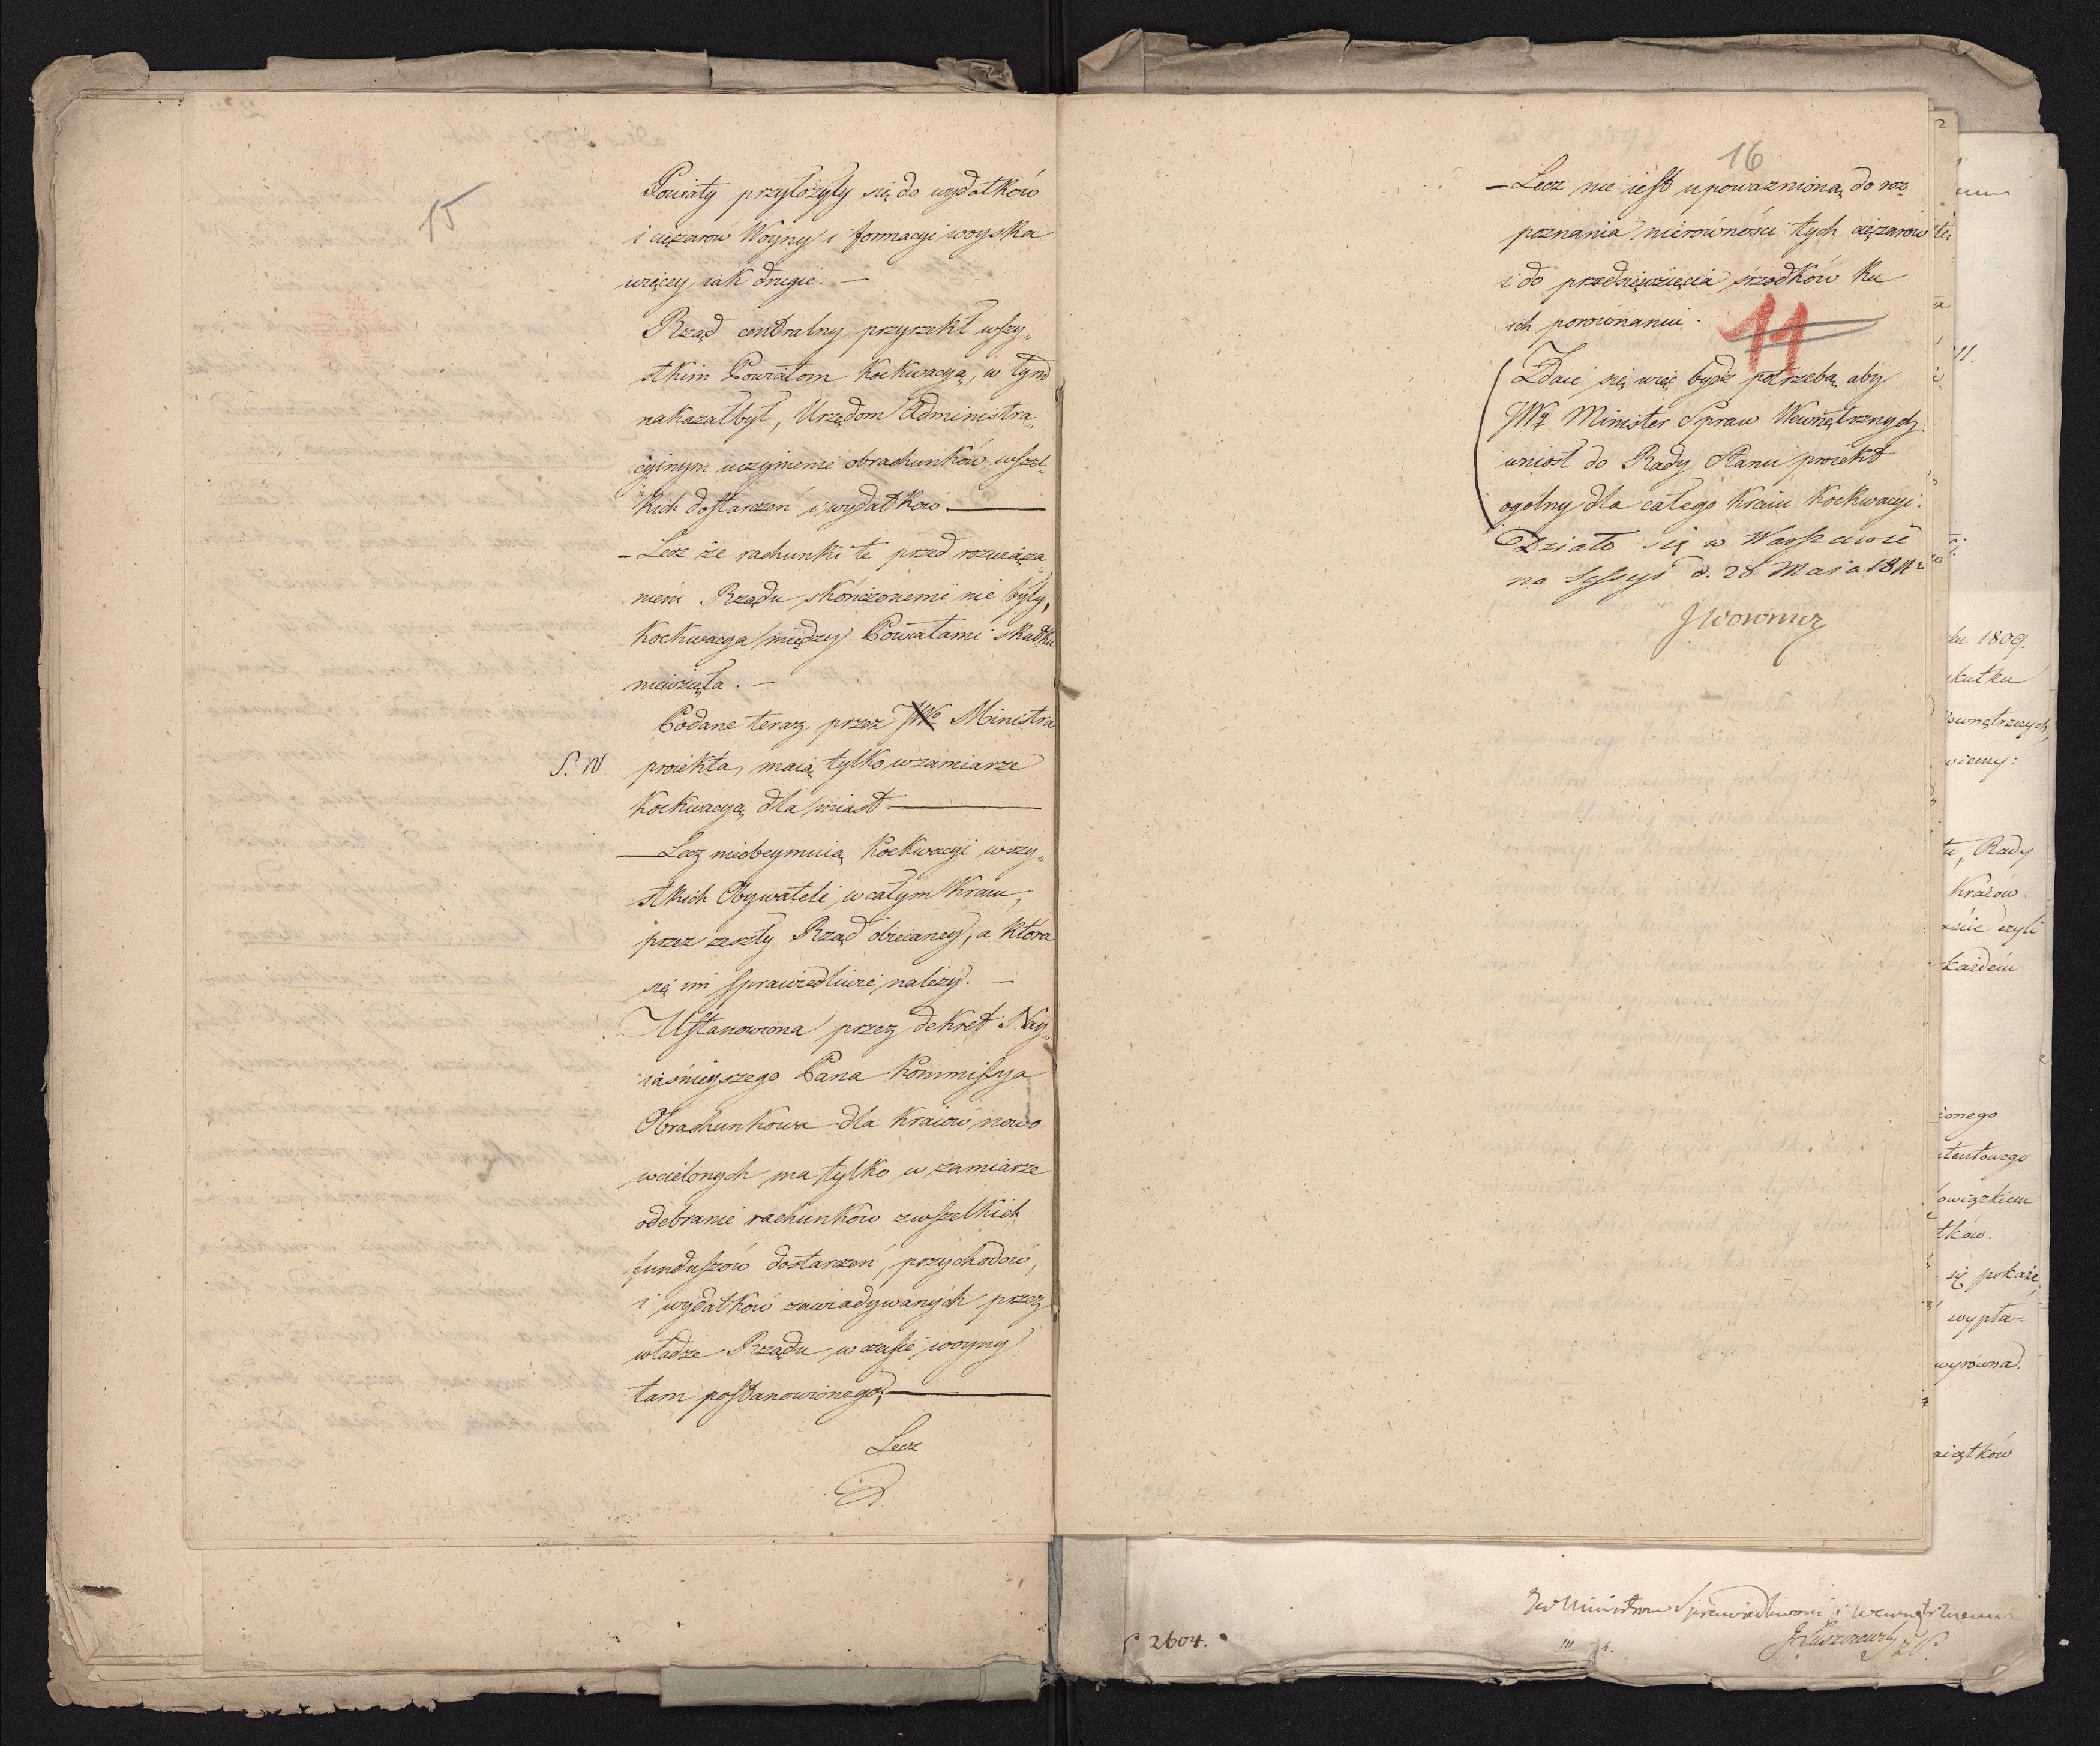 15
Powiaty przyłożyły się do wydatków
i ciężarów Woyny i formacyi woyska
więcey iak drugie. —
Rząd centralny przyrzekł wszy„
stkim Powiatom Koekwacyą, w tym
nakazał był, Urzędom Administra„
cyinym uczynienie obrachunków wszel„
kich dostarczeń i wydatków. —
– Lecz że rachunki te przed rozwiąza„
niem Rządu skończonemi nie były,
Koekwacya między Powiatami skutku
niewzięła. —
Podane teraz przez JW Ministra
S. W. proiekta, maią tylko w zamiarze
Koekwacyą dla miast —
— Lecz nieobeymuią Koekwacyi wszy„
stkich Obywateli w całym Kraiu,
przez zeszły Rząd obiecaney, a która
się im sprawiedliwie należy. —
Ustanowiona przez dekret Nay„
iaśnieyszego Pana Kommissya
Obrachunkowa dla Kraiów nowo
wcielonych ma tylko w zamiarze
odebranie rachunków z wszelkich
funduszów dostarczeń, przychodów,
i wydatków zawiadywanych przez
władze Rządu w czasie woyny
tam postanowionego, —
Lecz
16
– Lecz nie iest upoważnioną do roz„
poznania nierówności tych ciężarów
i do przedsięwzięcia srzodków ku
ich porównaniu.
11
Zdaie się więc bydź potrzebą aby
JW Minister Spraw Wewnętrznych
wniósł do Rady Stanu proiekt
ogólny dla całego Kraiu Koekwacyi.
Działo się w Warszawie
na Sessyi d. 28 Maia 1811
ku 1809.
skutku
ewnętrznych,
wiemy:
tu, Rady
Kraiów
czyli
każdém
ionego
owiązkiem
tków.
się pokaże,
wypła=
wyrówna.
aiątków
2604.
Sprawiedliwości i wewnętrznemu